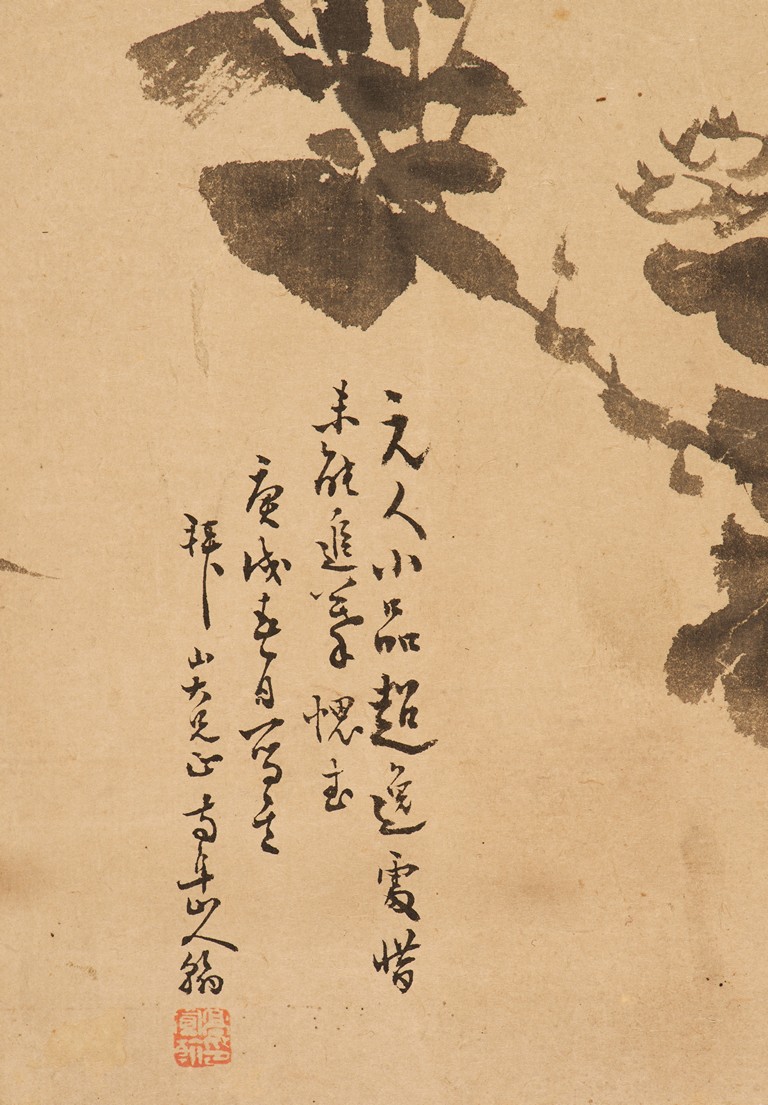 元人小品超逸處惜
未能追摹愧甚
庚戌春日寫
山大兄正南阜山人翰